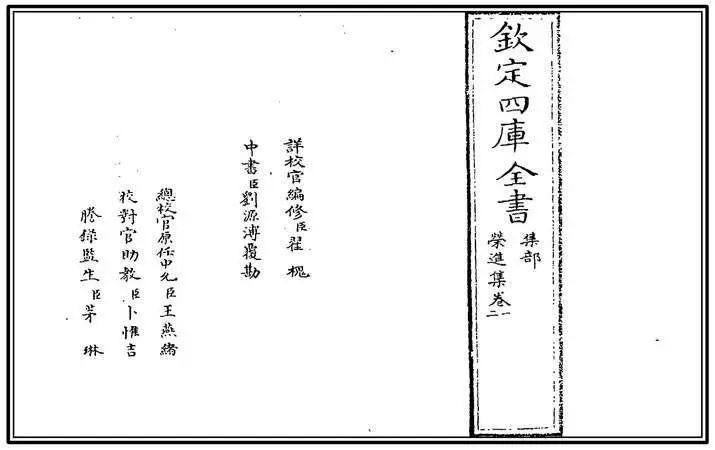 欽定四庫全書
集部
榮進集卷一二
詳校官編修臣翟槐
中書臣劉源溥覆勘
總校官原任中允臣王燕緒
校對官助教臣卜惟吉
謄錄監生臣茅琳